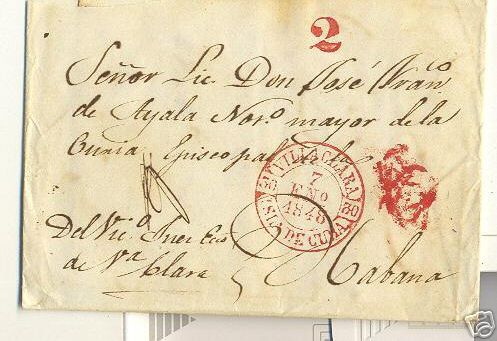 2
Señor Lic. Don José Fran.co
de Ayala Not.o mayor de la
Curia Episcopal de la
VILLA CLARA
7
ENO
1848
ISLA DE CUBA
Del Vic.o
de V.a Clara
Habana